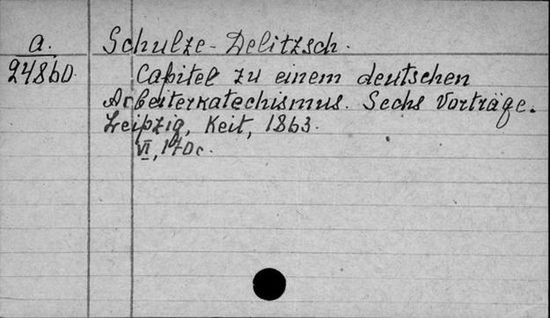 a. Schulze-Delitzsch.
24860. Capitel zu einem deutschen
Arbeiterkatechismus. Sechs Vorträge.
Leipzig, Keit, 1863.
VI, 170 c.